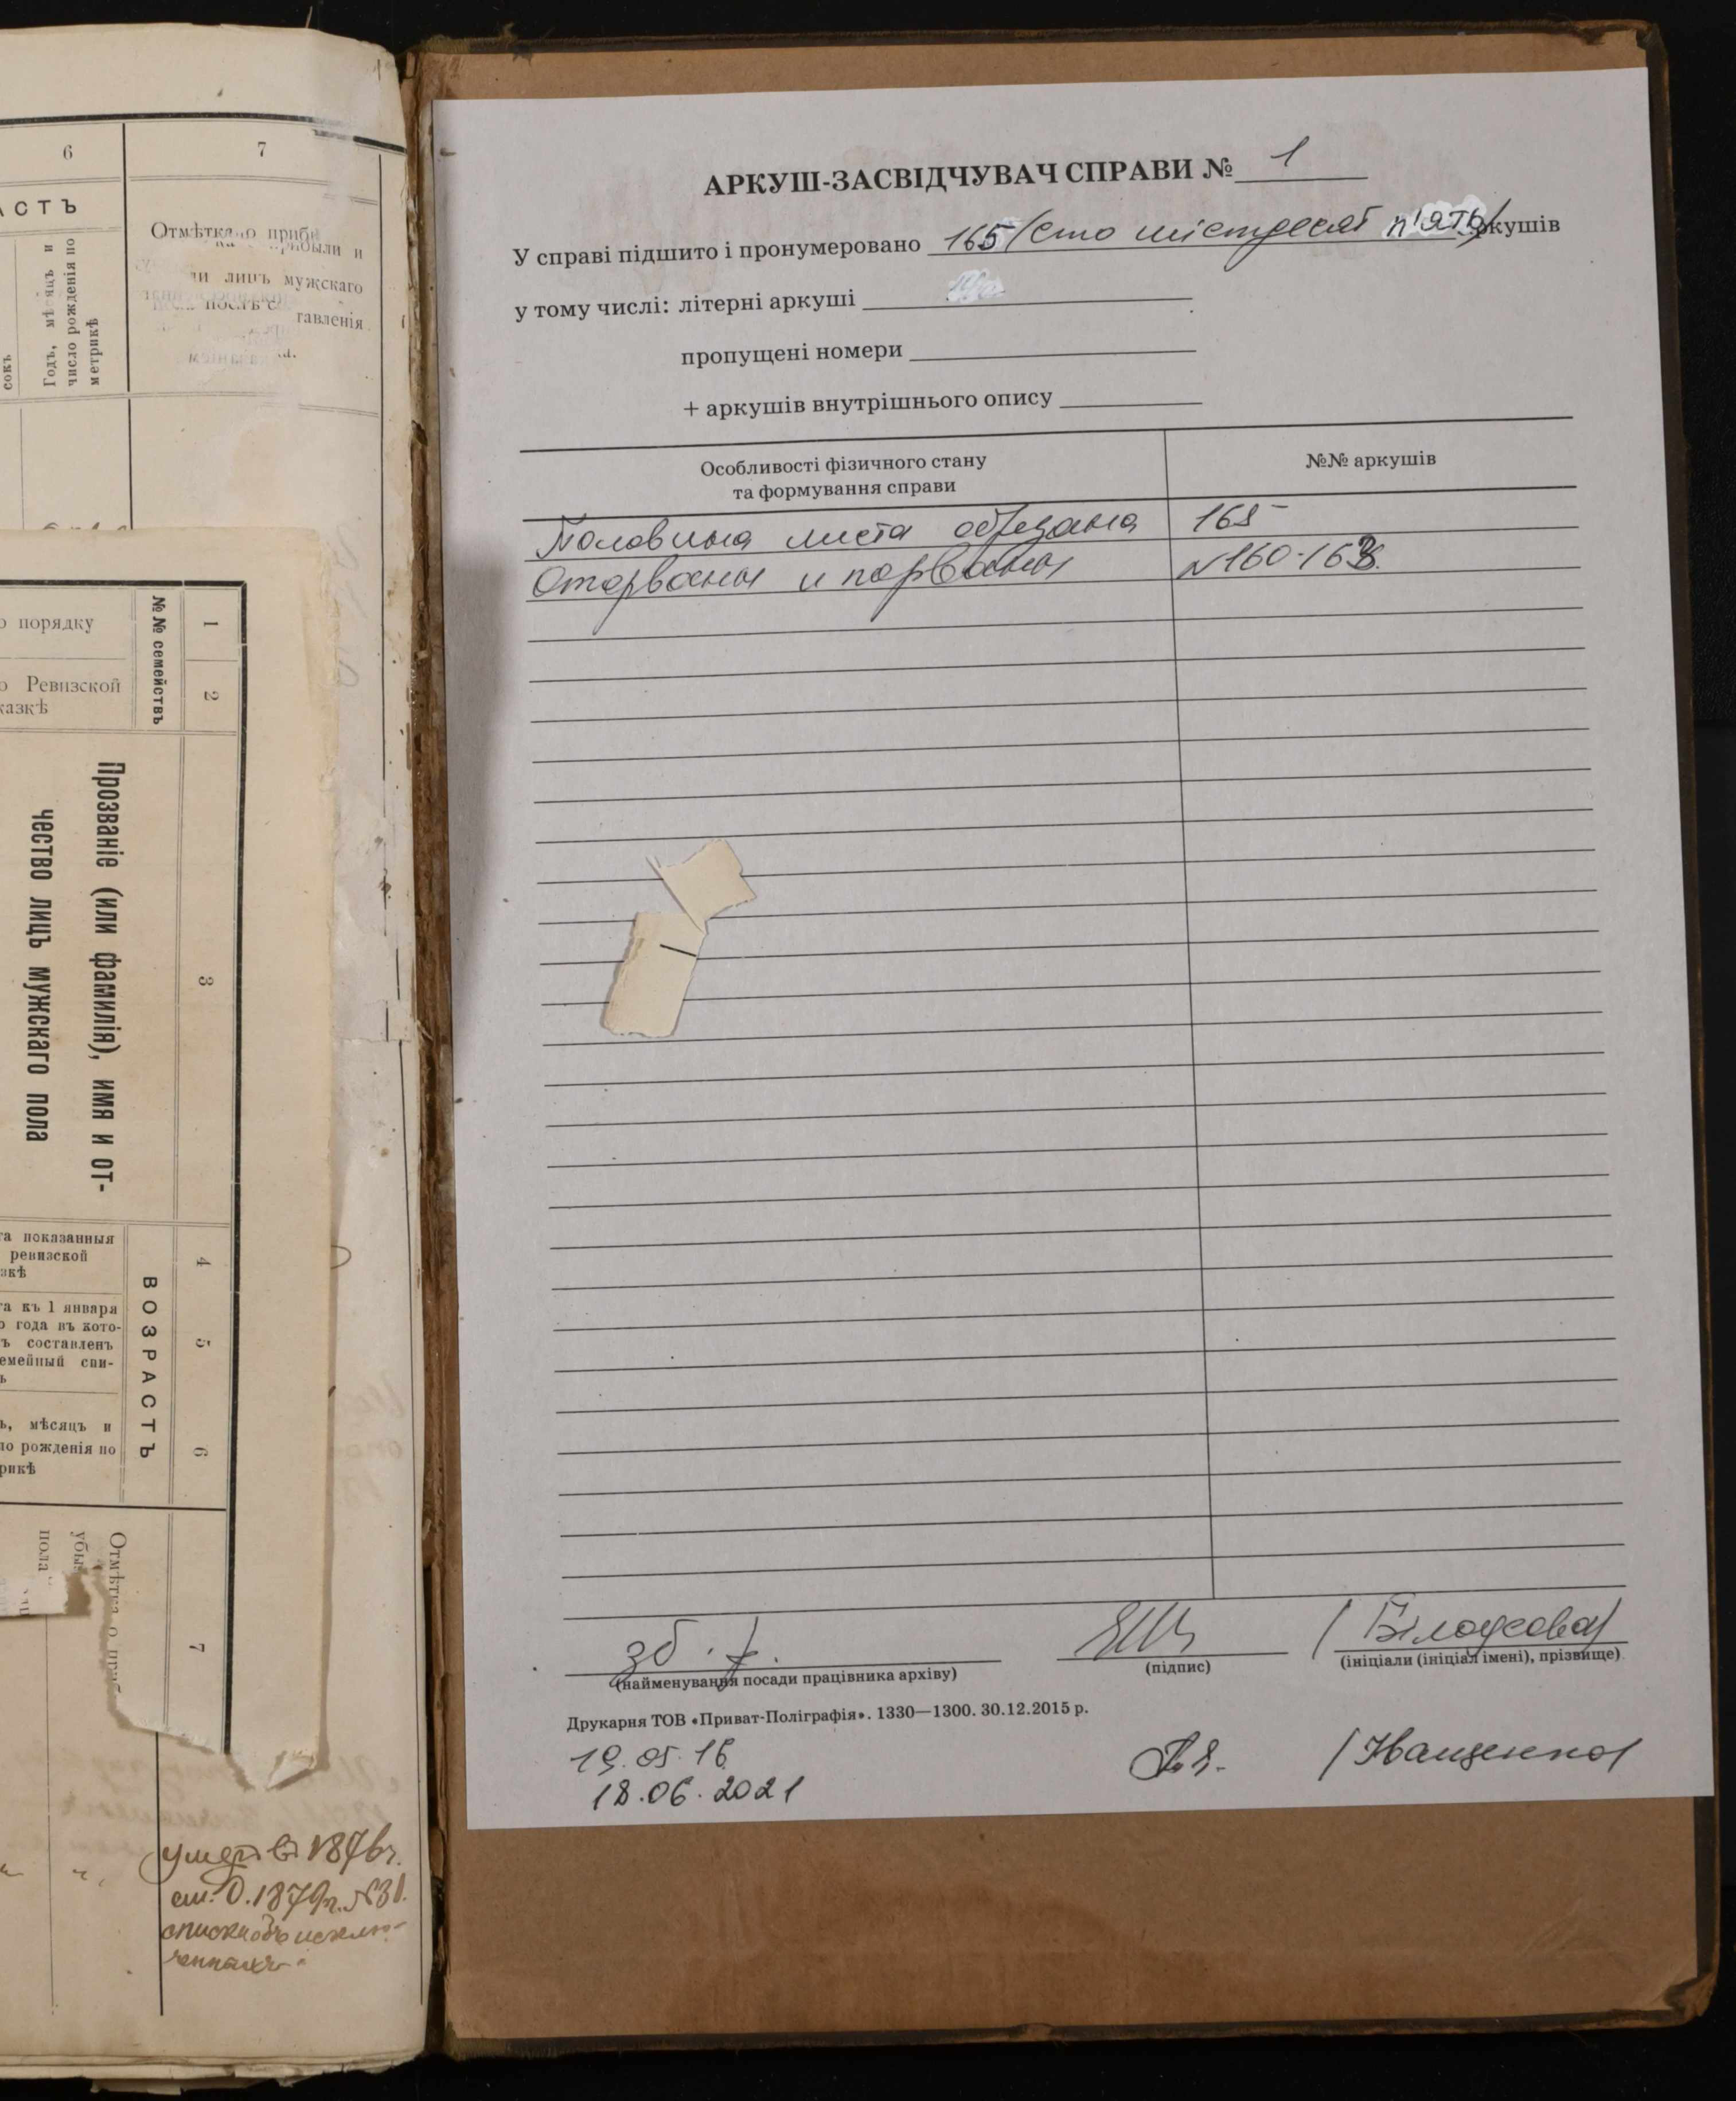 6
7
АСТЪ
сокъ
Годъ, мѣсяцъ и
число рожденія по
метрикѣ
Отмѣтка о приб
прибыли и
ли лицъ мужскаго
тавленія
о порядку
о Ревизской
казкѣ
№№ семействъ
1
2
Прозваніе (или фамилія), имя и от-
чество лицъ мужскаго пола
3
та показанныя
ревизской
зкѣ
та къ 1 января
о года въ кото-
ъ составленъ
емейный спи-
ъ
ь, мѣсяцъ и
ло рожденія по
рикѣ
ВОЗРАСТЪ
4
5
6
Отмѣтка о приб
убы
пола
7
умеръ въ 1876 г.
см. О. 1879 г. №31.
списка объ исклю-
ченныхъ
АРКУШ-ЗАСВІДЧУВАЧ СПРАВИ № 1
У справі підшито і пронумеровано 165 (сто шістдесят п'ять) аркушів
у тому числі: літерні аркуші
пропущені номери
+ аркушів внутрішнього опису
Особливості фізичного стану
та формування справи
№№ аркушів
Половина листа обрезана 165
Оторваны и порваны №160-163.
зб. ф.
(Білоусова)
(найменування посади працівника архіву)
(підпис)
(ініціали (ініціал імені), прізвище)
Друкарня ТОВ «Приват-Поліграфія». 1330—1300. 30.12.2015 р.
19.05.16
18.06.2021
/Іващенко/